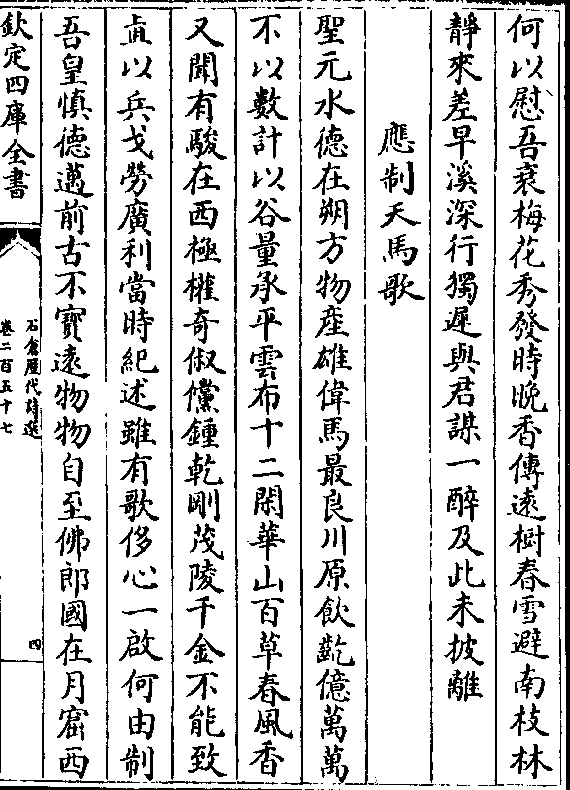 何以慰吾衰梅花秀發時晚香傳遠樹春雪避南枝林
靜來差早溪深行獨遲與君謀一醉及此未披離
應制天馬歌
聖元水德在朔方物產雄偉馬最良川原飲齕億萬萬
不以數計以谷量承平雲布十二閑華山百草春風香
又聞有駿在西極權奇俶儻鍾乾剛茂陵千金不能致
直以兵戈勞廣利當時紀述雖有歌侈心一啟何由制
吾皇慎德邁前古不寶遠物物自至佛郎國在月窟西
欽定四庫全書
石倉歷代詩選
卷二百五十七
四